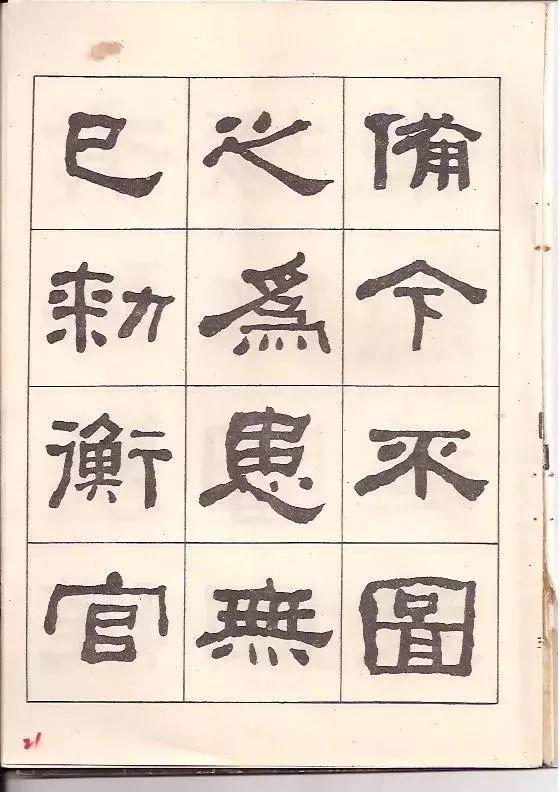 備今不圖
之為患無
已勑衡官
21